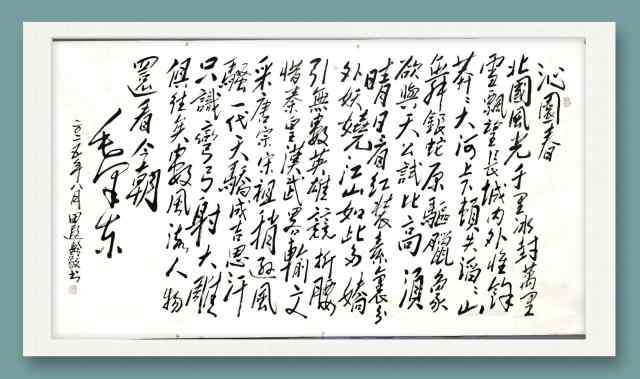 沁園春
北國風光千里冰封萬里
雪飄望長城內外惟餘
莽〻大河上下頓失滔〻山
舞銀蛇原驅臘象
欲與天公試比高須
晴日看紅裝素裹分
外妖嬈江山如此多嬌
引無數英雄競折腰
惜秦皇漢武略輸文
采唐宗宋祖稍遜風
騷一代天驕成吉思汗
只識彎弓射大雕
俱往矣數風流人物
還看今朝
毛澤東
二〇二五年八月田書